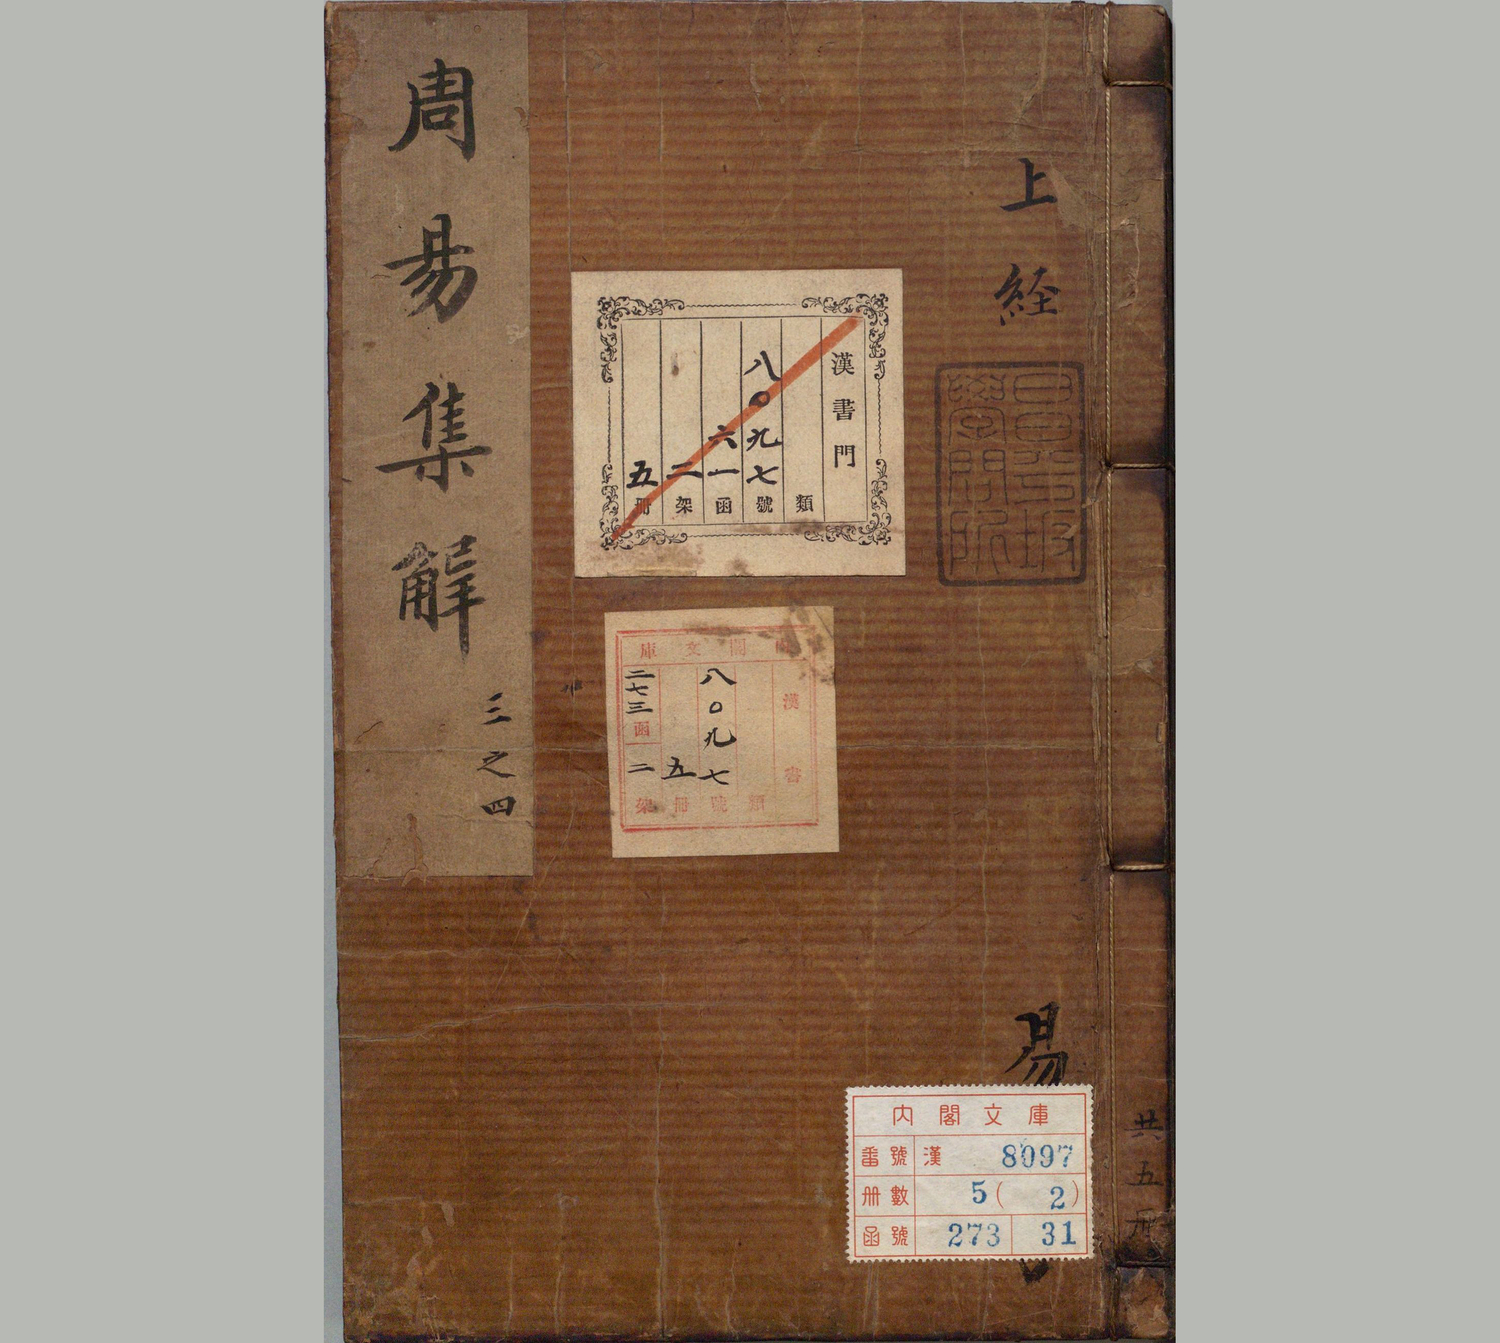 周易集解
三之四
上経
昌平坂
學問所
漢書門
類
八〇九七號
六一函
二架
五冊
内閣文庫
漢書
類
八〇九七號
五冊
二七三函
二架
易
内閣文庫
番號 漢 8097
冊數 5(2)
函號 273 31
共五冊